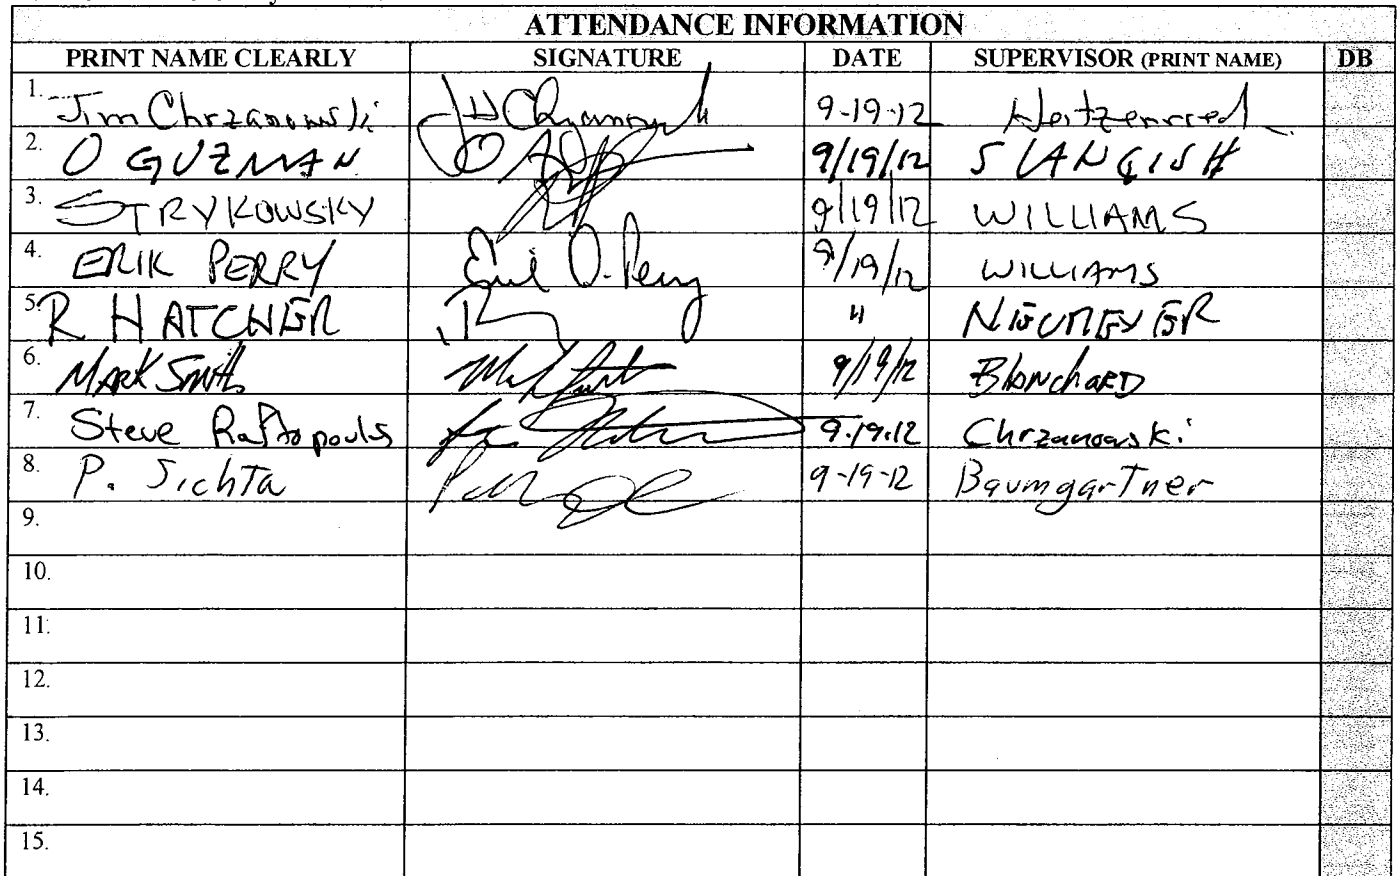 ATTENDANCE INFORMATION
PRINT NAME CLEARLY SIGNATURE DATE SUPERVISOR (PRINT NAME) DB
1. Jim Chrzanowski 9-19-12
2. O GUZMAN 9/19/12 SLANGISH
3. STRYKOWSKY 9/19/12 WILLIAMS
4. ERIK PERRY Erik D. Perry 9/19/12 WILLIAMS
5. R HATCHER " NEUMEYER
6. MARK Smith 9/19/12 BlanchARD
7. Steve Raftopoulos 9.19.12 Chrzanowski
8. P. Sichta 9-19-12 Baumgartner
9.
10.
11.
12.
13.
14.
15.